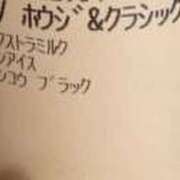 ホウジ&クラシック
クストラミルク
ンアイス
ンコウ ブラック